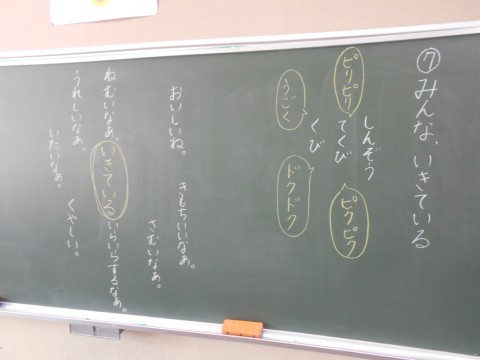 ⑦みんな、いきている
しんぞう
ピリピリ
てくび
ピクピク
くび
うごく
ドクドク
おいしいね。
きもちいいなぁ。
さむいなぁ。
ねむいなぁ。
いきている。
いらいらするなぁ。
うれしいなぁ。
くやしい。
いたいなぁ。